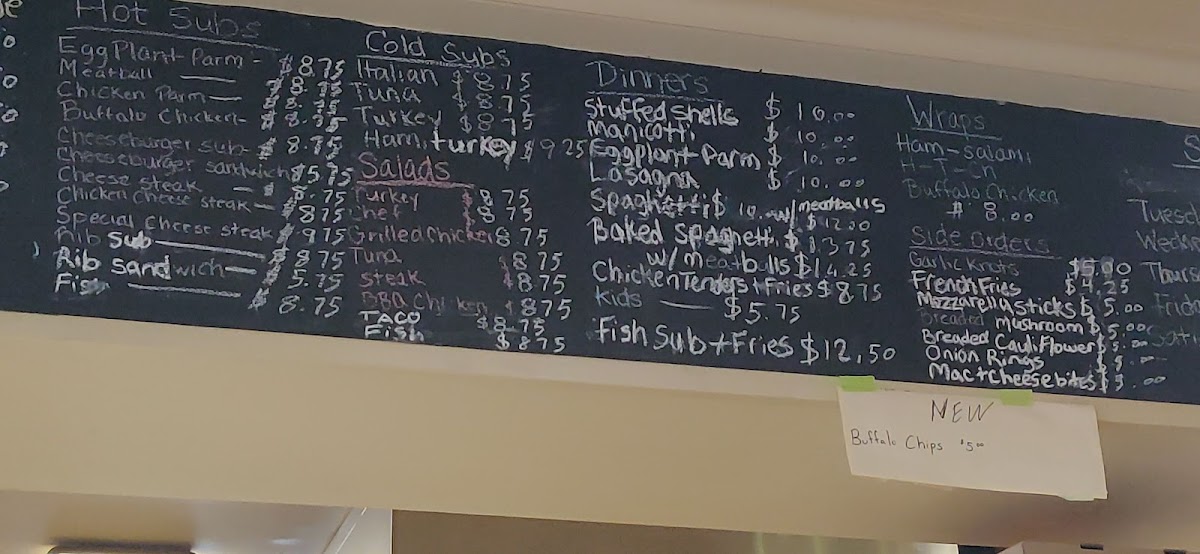 Hot Subs
EggPlant Parm - $8.75
Meatball — $8.75
Chicken Parm — $8.75
Buffalo Chicken - $8.75
Cheeseburger sub - $8.75
Cheeseburger sandwich $5.75
Cheese steak — $8.75
Chicken Cheese steak — $875
Special Cheese steak $975
Rib Sub — $8.75
Rib Sandwich — $5.75
Fish — $8.75
Cold Subs
Italian $8.75
Tuna $8.75
Turkey $8.75
Ham, turkey $9.25
Salads
Turkey $8.75
Chef $8.75
Grilled Chicken 8.75
Tuna $8.75
Steak $8.75
BBQ Chicken $875
TACO $8.75
Fish $875
Dinners
Stuffed Shells $10.00
Manicotti 10.00
EggPlant Parm $10.00
Lasagna $10.00
Spaghetti $10. w/meatballs
$12.00
Baked Spaghetti $13.75
w/meatballs $14.25
Chicken Tenders + Fries $8.75
Kids — $5.75
Fish Sub + Fries $12.50
Wraps
Ham-salami
H-T-Ch
Buffalo Chicken
$8.00
Side Orders
Garlic Knots $5.00
French Fries $4.25
Mozzarella Sticks $5.00
Breaded Mushroom $5.00
Breaded Cauliflower $5.00
Onion Rings $5.00
Mac+Cheese bites $5.00
S
Tuesd
Wedn
Thurs
Frid
NEW
Buffalo Chips $5.00